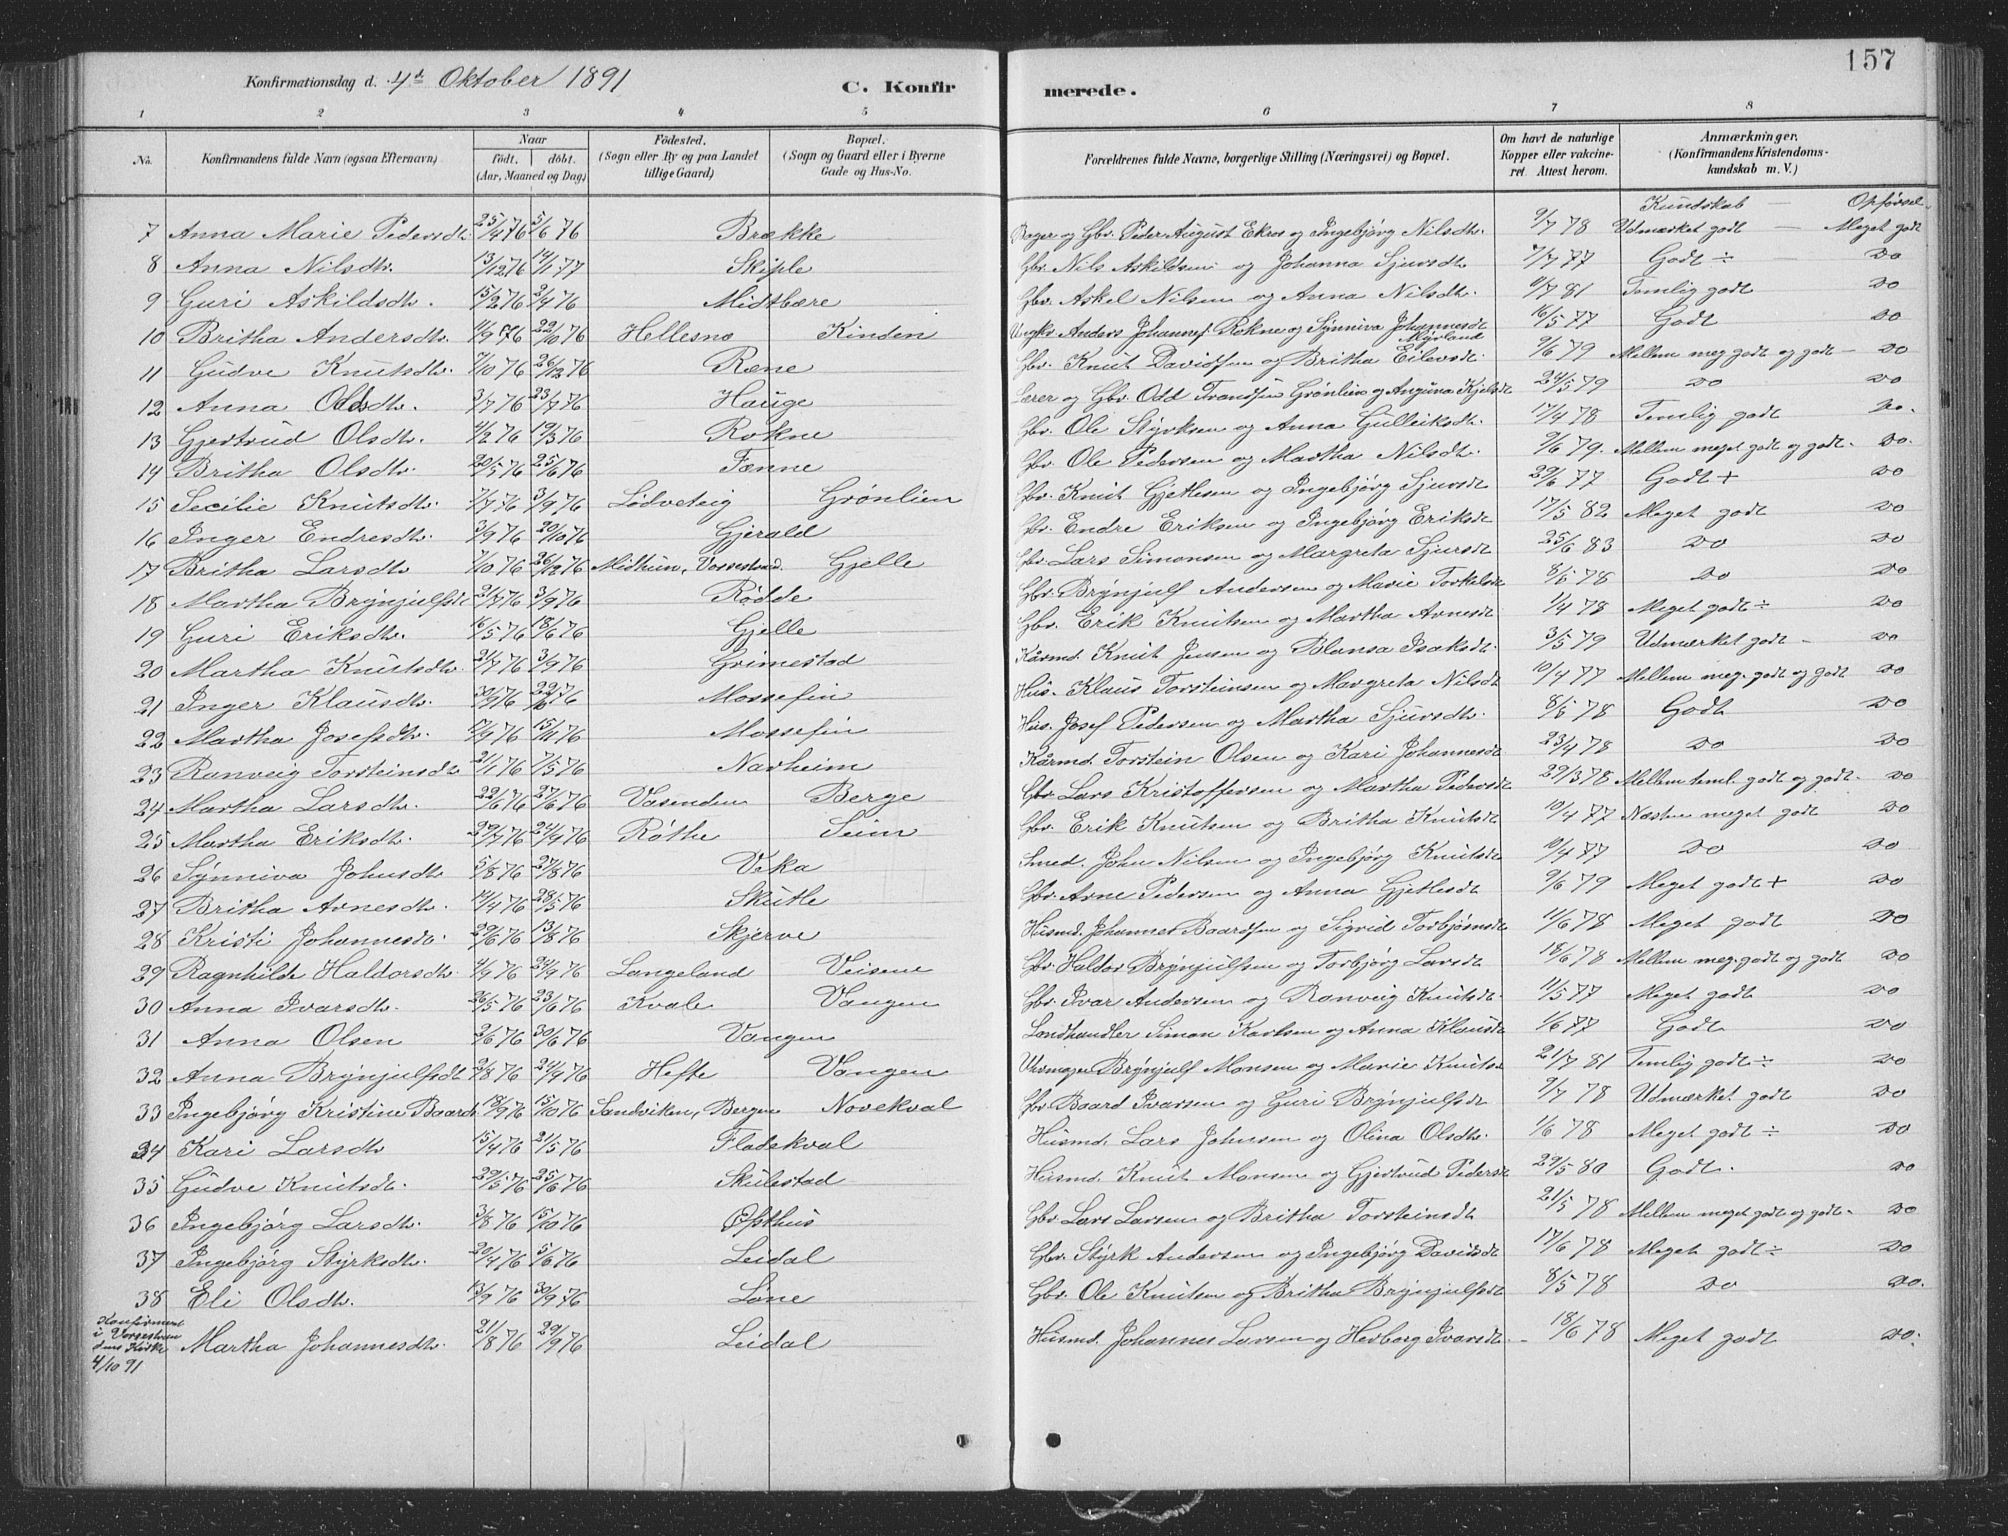 Konfirmationsdag d. 4de Oktober 1891 C. Konfirmerede. 157
1 2 3 4 5 6 7 8
No. Konfirmandens fulde Navn (ogsaa Efternavn) Naar født, døbt. (Aar, Maaned og Dag) Fødested. (Sogn eller By og paa Landet tillige Gaard) Bopæl. (Sogn og Gaard eller i Byerne Gade og Hus-No. Forældrenes fulde Navne, borgerlige Stilling (Næringsvei) og Bopæl. Om havt de naturlige Kopper eller vakcineret. Attest herom. Anmærkninger. (Konfirmandens Kristendomskundskab m. V.)
Kundskab — Opførsel
7 Anna Marie Pedersdtr. 25/4 76 5/6 76 Brække Bager og Gbr. Peder August Ekros og Ingebjørg Nilsdtr. 9/7 78 Udmærket godt — Meget godt
8 Anna Nilsdtr. 13/12 76 14/1 77 Skiple Gbr. Nils Askildsen og Johanna Sjursdtr 7/7 77 Godt ÷ Do
9 Guri Askildsdtr. 15/2 76 2/4 76 Midtbære Gbr. Askel Nilsen og Anna Nilsdtr. 9/7 81 Temlig godt Do
10 Britha Andersdtr. 4/9 76 22/10 76 Hellesnø Kinden Ungkr. Anders Johannes. Rokne og Synniva Johannesdt Myrland 16/5 77 Godt Do
11 Gudve Knutsdtr. 7/10 76 26/12 76 Ræne Gbr. Knut Davidsen og Britha Eilevsdt. 9/6 79 Mellem meg godt og godt — Do
12 Anna Oddsdtr. 3/7 76 23/7 76 Hauge Lærer og Gbr. Odd Grønlien og Kjelsdt 24/5 79 Do Do
13 Gjertrud Olsdtr. 4/2 76 19/3 76 Rokne Gbr. Ole Styrksen og Anna Gulleiksdt. 17/4 78 Temlig godt Do.
14 Britha Olsdtr. 20/5 76 25/6 76 Fenne Gbr. Ole Pedersen og Martha Nilsdt. 9/6 79. Mellem meget godt og godt. Do.
15 Secilie Knutsdtr. 7/7 76 3/9 76 Lødveteig Grønlien Gbr. Knut Gjetlesen og Ingebjørg Sjursdt 29/6 77 Godt + Do
16 Inger Endresdtr. 3/9 76 20/10 76 Gjerald Gbr. Endre Eriksen og Ingebjørg Eriksdt 17/5 82 Meget godt Do
17 Britha Larsdtr 7/10 76 26/12 76 Midtun, Vossestrand. Gjelle Gbr. Lars Simonsen og Margreta Sjursdt 25/6 83 Do Do
18 Martha Brynjulfsdt 21/7 76 3/9 76 Rødde Gbr. Brynjulf Andersen og Marie Torkelsdt 8/5 78 Do Do
19 Guri Eriksdtr. 16/5 76 18/6 76 Gjelle Gbr. Erik Knutsen og Martha Arnesdt 1/4 78 Meget godt ÷ Do
20 Martha Knutsdtr. 21/7 76 3/9 76 Grimestad Kårmd. Knut Jensen og Blansa Isaksdt. 3/5 79 Udmærket godt — Do
21 Inger Klausdtr. 30/9 76 Mossefin Hus. Klaus Torsteinsen og Margreta Nilsdt 10/4 77 Mellem meg. godt og godt Do
22 Martha Josefsdtr. 17/9 76 15/11 76 Mossefin Hus. Josef Pedersen og Martha Sjursdtr. 8/5 78 Godt Do
23 Ranveig Torsteinsdtr 21/1 76 7/5 76 Navheim Kårmd. Torstein Olsen og Kari Johannesdt 23/4 78 Do Do
24 Martha Larsdtr. 22/6 76 27/6 76 Vasenden Berge Gbr. Lars Kristoffersen og Martha Pedersdt 29/3 78 Mellem teml. godt og godt. Do
25 Martha Eriksdtr. 29/7 76 24/9 76 Røthe Seim Gbr. Erik Knutsen og Britha Knutsdt 10/4 77 Næsten meget godt Do
26 Synniva Johnsdtr 5/8 76 27/8 76 Veka Smed. John Nilsen og Ingebjørg Knutsdt 10/4 77 Do Do
27 Britha Arnesdtr. 14/4 76 28/5 76 Skutle Gbr. Arne Pedersen og Anna Gjetlesdt 9/6 79 Meget godt + Do
28 Kristi Johannesdt. 29/6 76 13/8 76 Skjerve Husmd. Johannes Baardsen og Sigvid Torbjørnsdt 11/6 78 Meget godt Do
29 Ragnhilde Haldorsdtr. 4/9 76 24/9 76 Langeland Veisene Gbr. Haldor Brynjulfsen og Torbjørg Larsdt 18/6 78 Mellem meg. godt og godt Do
30 Anna Ivarsdtr. 26/5 76 23/6 76 Kvale Vangen Gbr. Ivar Andersen og Ranveig Knutsdt. 11/5 77 Meget godt Do
31 Anna Olsen 2/6 76 30/6 76 Vangen Landhandler Simon Karlsen og Anna Klausdt 1/6 77 Godt Do
32 Anna Brynjulfsdt 2/8 76 24/9 76 Hefte Vangen Urmager Brynjulf Monsen og Marie Knutsdt 21/7 81 Temlig godt ÷ Do
33 Ingebjørg Kristine Baardsdt 18/9 76 15/10 76 Sandviken, Bergen Novekval Gbr. Baard Ivarsen og Guri Brynjulfsdt 9/7 78 Udmærket godt Do
34 Kari Larsdtr 15/4 76 21/5 76 Fladekval Husmd. Lars Johnsen og Olina Olsdtr. 1/6 78 Meget godt ÷ Do
35 Gudve Knutsdt. 29/5 76 25/6 76 Skulestad Husmd. Knut Monsen og Gjertrud Pedersdt 29/5 80 Godt. Do
36 Ingebjørg Larsdtr. 3/8 76 15/10 76 Øfsthus Gbr. Lars Larsen og Britha Torsteinsdt 21/5 78 Mellem meget godt og godt. Do
37 Ingebjørg Styrksdtr. 20/4 76 5/6 76 Leidal Gbr. Styrk Andersen og Ingebjørg Davidsdt 17/6 78 Meget godt ÷ Do
38 Eli Olsdtr. 13/9 76 30/9 76 Løne Gbr. Ole Knutsen og Britha Brynjulfsdt 8/5 78 Do Do.
Konfirmert i Vossestrandens Kirke 4/10 91 Martha Johannesdtr. 21/8 76 29/9 76 Leidal Husmd. Johannes Larsen og Herborg Ivarsdt. 18/6 78 Meget godt Do.